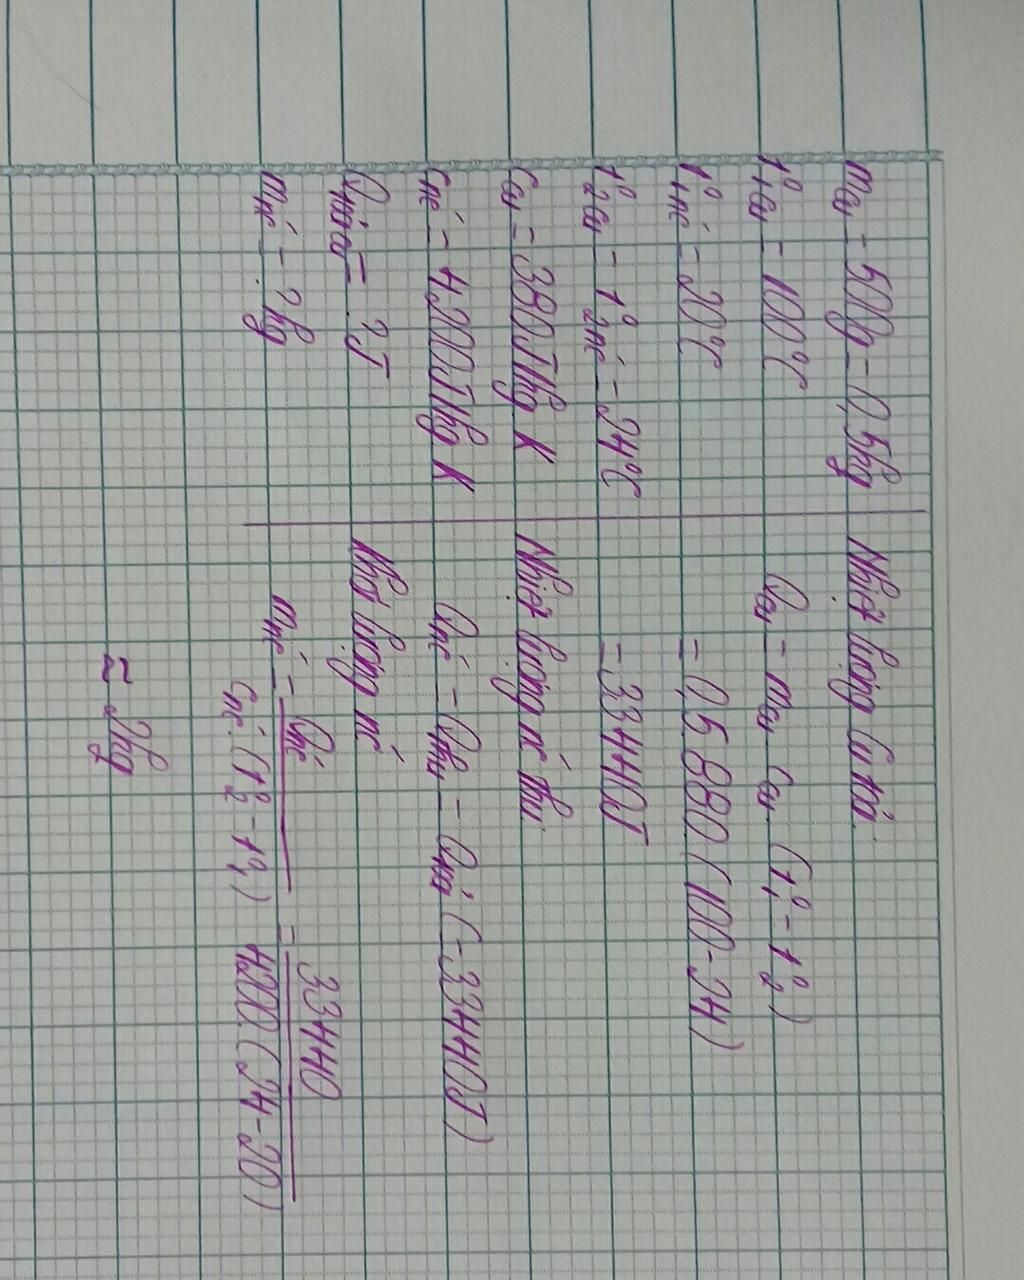 mCu = 500g = 0,5kg
t°1Cu = 100°C
t°1nc = 20°C
t°2Cu = t°2nc = 24°C
CCu = 380J/kg K
Cnc = 4200J/kg K
Qtỏa = ? J
mnc = ? kg
Nhiệt lượng Cu tỏa:
QCu = mCu. CCu. (t°1 - t°2)
= 0,5.880 (100 - 24)
= 33440J
Nhiệt lượng nc thu:
Qnc = Qthu = Qtỏa (= 33440J)
Khối lượng nc
mnc = Qnc / Cnc.(t°2 - t°1) = 33440 / 4200.(24 - 20)
≈ 2kg